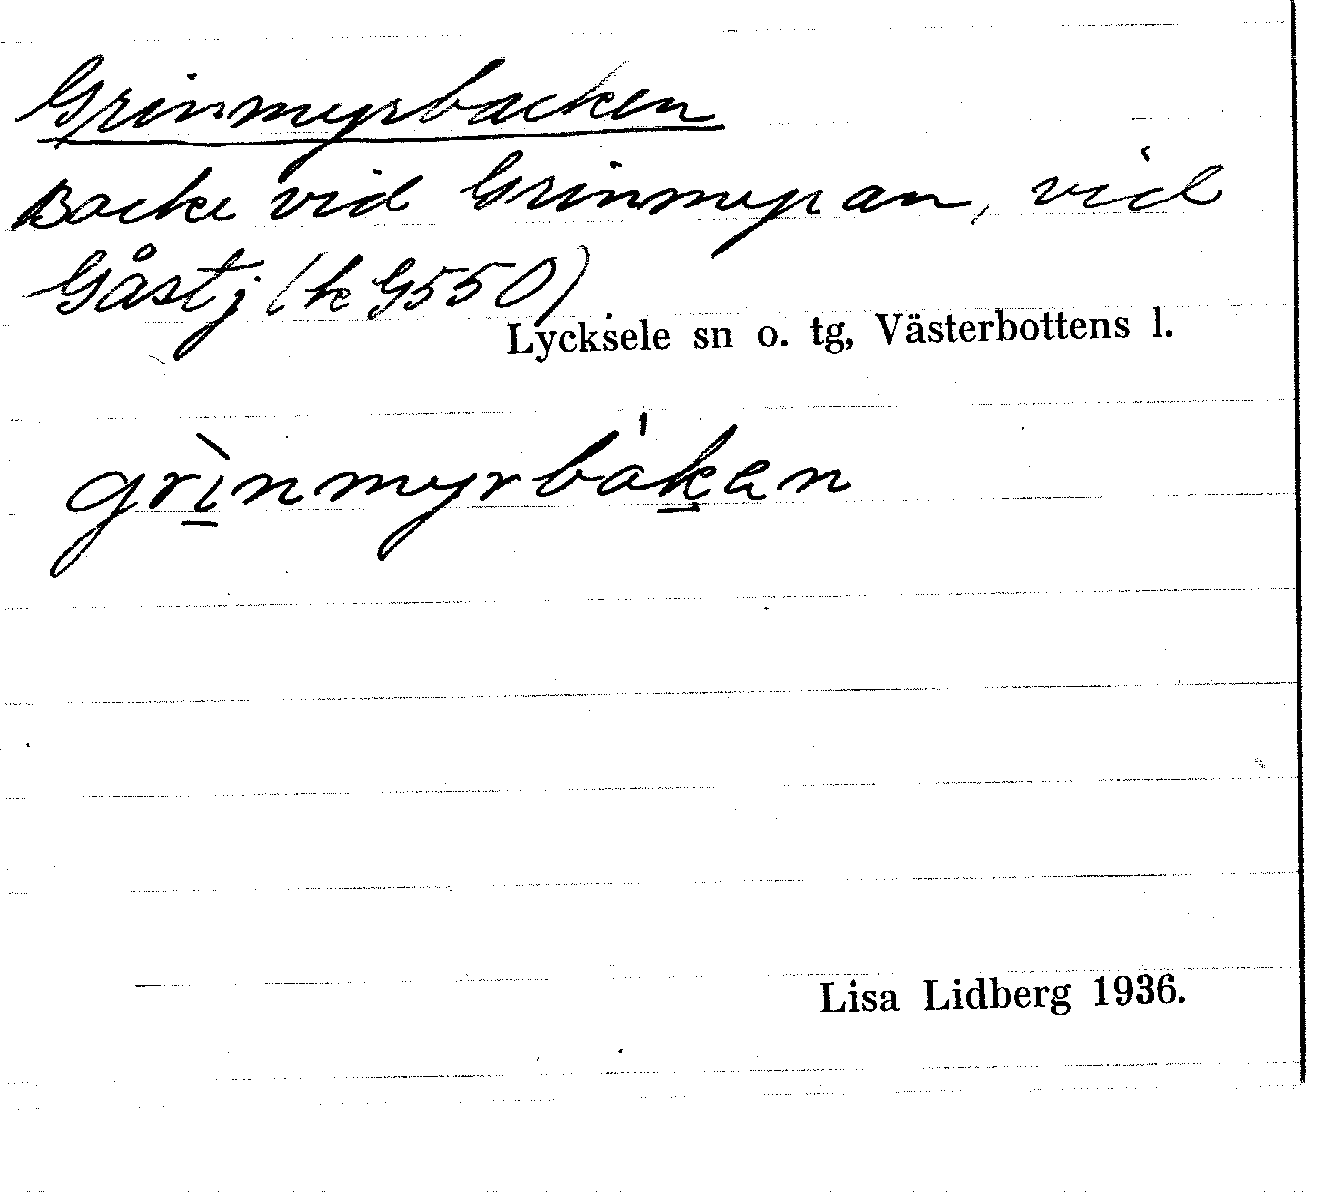 Grinmyrbacken
Backe vid Grinmyran, vid
Gåstj (k G550)
Lycksele sn o. tg, Västerbottens l.
grìnmyrbákan
Lisa Lidberg 1936.